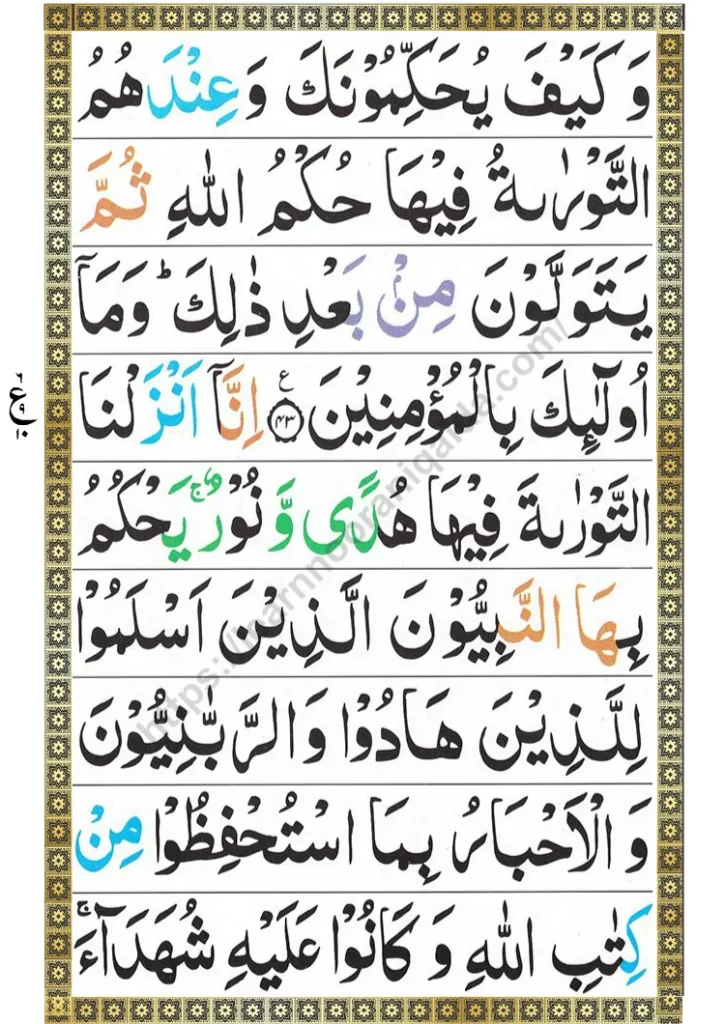 وَ كَيْفَ يُحَكِّمُوْنَكَ وَ عِنْدَ هُمُ
التَّوْرٰىةُ فِيْهَا حُكْمُ اللّٰهِ ثُمَّ
يَتَوَلَّوْنَ مِنْۢ بَعْدِ ذٰلِكَ ؕ وَمَاۤ
اُولٰٓئِكَ بِالْمُؤْمِنِيْنَ ۟ع ۴۳ اِنَّاۤ اَنْزَ لْنَا
التَّوْرٰىةَ فِيْهَا هُدًى وَّ نُوْرٌ ۚ يَحْكُمُ
بِهَا النَّبِيُّوْنَ الَّذِيْنَ اَسْلَمُوْا
لِلَّذِيْنَ هَادُوْا وَالرَّبّٰنِيُّوْنَ
وَ الْاَحْبَارُ بِمَا اسْتُحْفِظُوْا مِنْ
كِتٰبِ اللّٰهِ وَ كَانُوْا عَلَيْهِ شُهَدَآءَ ۚ